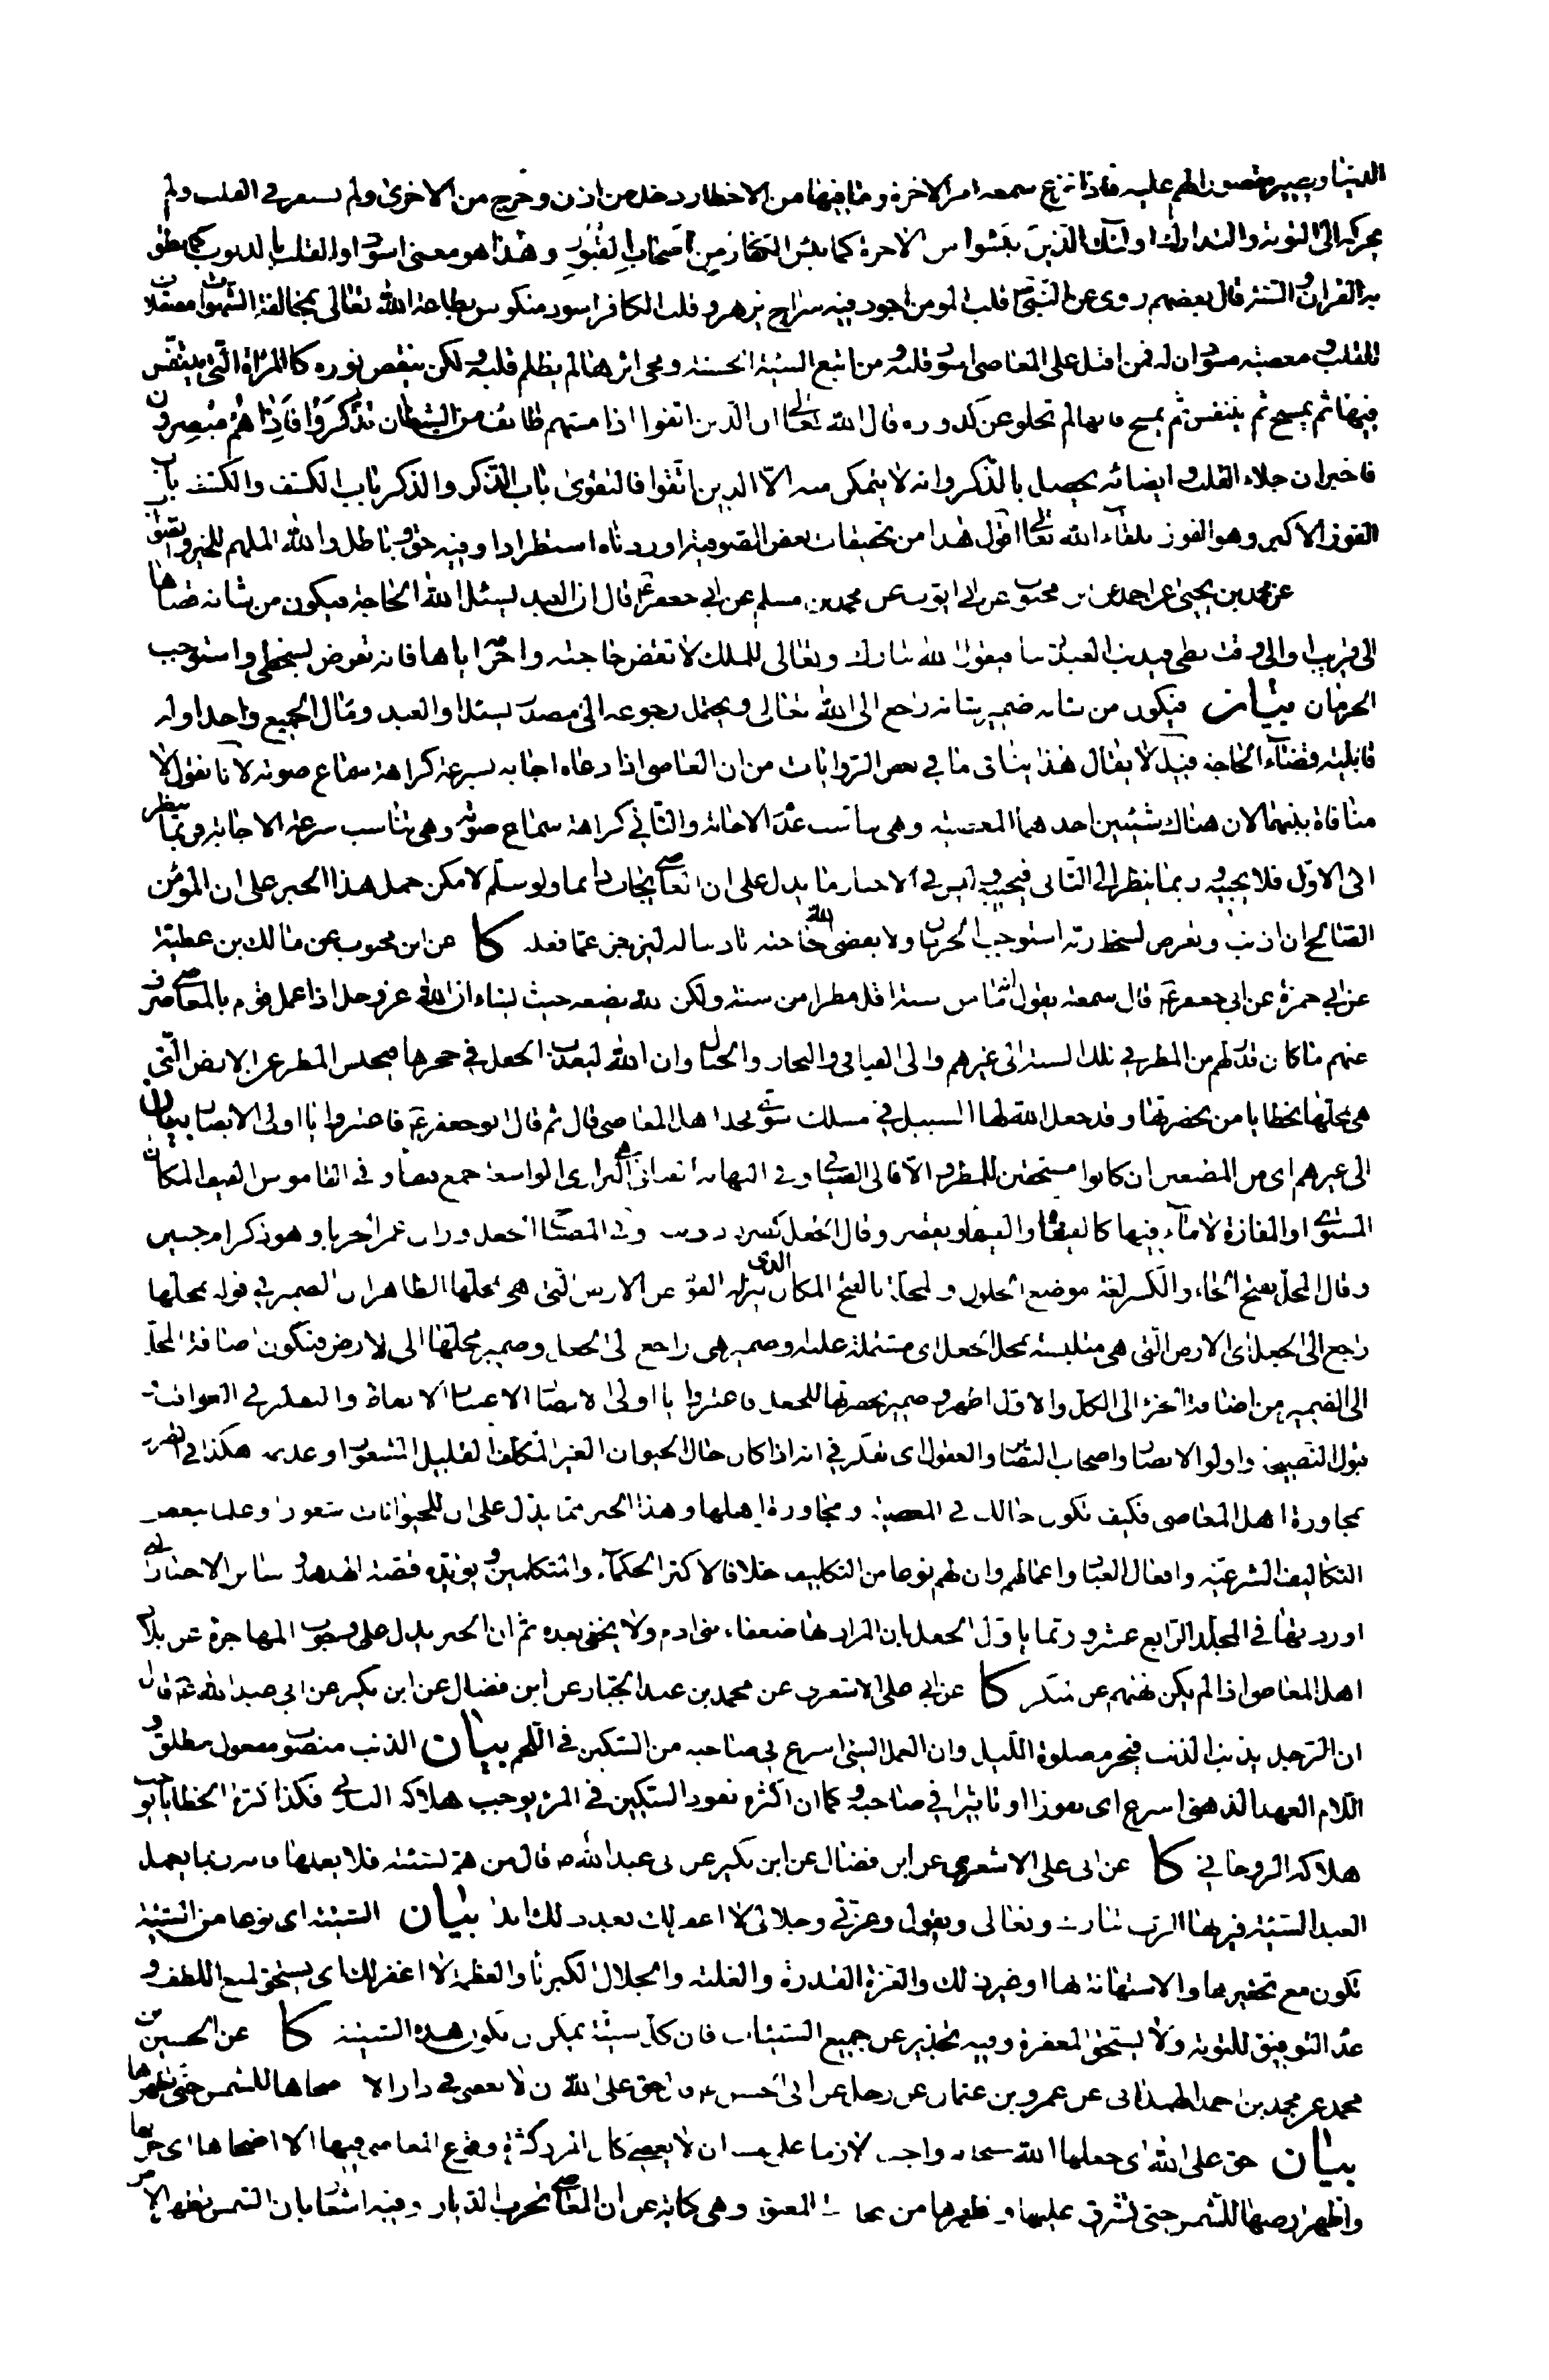 الدنيا ويصير مقصور الهم عليه فاذا قرع سمعه امر الاخرة وما فيها من الاخطار دخل من اذن وخرج من الاخرى ولم يستقر في القلب ولم
يحركه الى التوبة والتدارك اولئك الذين يئسوا من الاخرة كما يئس الكفار من اصحاب القبور وهذا هو معنى اسوداد القلب بالذنوب كما نطق
به القران والسنة قال بعضهم روى عن النبي قلب المومن اجرد فيه سراج يزهر وقلب الكافر اسود منكوس بطاعة الله تعالى بمخالفة الشهوات مصقلات
للقلب و معصيته مسودات له فمن اقبل على المعاصي اسود قلبه ومن اتبع السيئة الحسنة ومحى اثرها لم يظلم قلبه ولكن ينقص نوره كالمراة التي يتنفس
فيها ثم يمسح ثم يتنفس ثم يمسح فانها لم تخلو عن كدورة قال الله تعالى ان الذين اتقوا اذا مسهم طائف من الشيطان تذكروا فاذا هم مبصرون
فاخبر ان جلاء القلب و ايضائه يحصل بالذكر وانه لا يتمكن منه الا الذين اتقوا فالتقوى باب الذكر والذكر باب الكشف والكشف باب
الفوز الاكبر وهو الفوز بلقاء الله تعالى اقول هذا من تحقيقات بعض الصوفية اوردناه استطرادا وفيه حق و باطل والله الملهم للخير والصواب
عن محمد بن يحيى عن احمد عن ابن محبوب عن ابي ايوب عن محمد بن مسلم عن ابي جعفر ع قال ان العبد يسئل الله الحاجة فيكون من شانه قضاها
الى اجل قريب او الى وقت بطئ فيذنب العبد ذنبا فيقول الله تبارك وتعالى للملك لا تقض حاجته واحرمه اياها فانه تعرض لسخطي واستوجب
الحرمان بيان فيكون من شانه ضمير شانه راجع الى الله تعالى ويحتمل رجوعه الى مصدر يسئل او العبد ومال الجميع واحد اوله
قابلية قضاء الحاجة قيل لا يقال هذا ينافي ما في بعض الروايات من ان العاصي اذا دعاه اجابه بسرعة كراهة سماع صوته لانا نقول لا
منافاة بينهما لان هناك شيئين احدهما المعصية وهي تناسب عدم الاجابة والثاني كراهة سماع صوته وهي تناسب سرعة الاجابة فربما ينظر
الى الاول فلا يجيبه و ربما ينظر الى الثاني فيجيبه و ليس في الاخبار ما يدل على ان العاصي يجاب دائما ولو سلم لامكن حمل هذا الخبر على ان المومن
الصالح ان اذنب وتعرض لسخط ربه استوجب الحرمان ولا يقضى الله حاجته تاديبا له لينزجر عما فعله كا عن ابن محبوب عن مالك بن عطية
عن ابي حمزة عن ابي جعفر ع قال سمعته يقول انه ما من سنة اقل مطرا من سنة ولكن الله يضعه حيث يشاء ان الله عز وجل اذا عمل قوم بالمعاصي صرف
عنهم ما كان قدر لهم من المطر في تلك السنة الى غيرهم والى الفيافي والبحار والجبال وان الله ليعذب الجعل في جحرها فيحبس المطر عن الارض التي
هي بمحلها بخطايا من بحضرتها وقد جعل الله لها السبيل في مسلك سوى محلة اهل المعاصي قال ثم قال ابو جعفر ع فاعتبروا يا اولى الابصار بيان
الى غيرهم اى من المطيعين ان كانوا مستحقين للمطر والا فالى الفيافي وفي النهاية الفيافي البراري الواسعة جمع فيفاء وفي القاموس الفيف المكان
المستوي او المفازة لا ماء فيها كالفيفاة والفيفاء ويقصر وقال الجعل كصرد دويبة وفي المصباح الجعل وزان عمر الحرباء وهو ذكر ام حبين
وقال المحل بفتح الحاء والكسر لغة موضع الحلول والمحلة بالفتح المكان الذي ينزله القوم عن الارض التي هي بمحلها الظاهر ان الضمير في قوله بمحلها
راجع الى الجعل اى الارض التي هي متلبسة بمحل الجعل اى مشتملة عليه وضمير هي راجع الى الجعل وضمير محلتها الى الارض فتكون اضافة المحل
الى الضمير من اضافة الجزء الى الكل والاول اظهر و ضمير بحضرتها للجعل فاعتبروا يا اولى الابصار الاعتبار الاتعاظ والتفكر في العواقب
وقبول النصيحة واولوا الابصار اصحاب البصائر والعقول اى تفكر في انه اذا كان حال الحيوان الغير المكلف القليل الشعور او عديمه هكذا في التضرر
بمجاورة اهل المعاصي فكيف تكون حالك في المعصية ومجاورة اهلها وهذا الخبر مما يدل على ان للحيوانات شعورا وعلما ببعض
التكاليف الشرعية وافعال العباد واعمالهم وان لهم نوعا من التكليف خلافا لاكثر الحكماء والمتكلمين و يؤيده قصة الهدهد و سائر الاخبار التي
اوردتها في المجلد الرابع عشر و ربما ياول الجعل بان المراد بها ضعفاء بني ادم ولا يخفى بعده ثم ان الخبر يدل على وجوب المهاجرة عن بلاد
اهل المعاصي اذا لم يكن نهيهم عن منكر كا عن ابي علي الاشعري عن محمد بن عبد الجبار عن ابن فضال عن ابن بكير عن ابي عبد الله ع قال
ان الرجل يذنب الذنب فيحرم صلوة الليل وان العمل السيئ اسرع في صاحبه من السكين في اللحم بيان الذنب منصوب مفعول مطلق و
اللام للعهد الذهني اسرع اى نفوذا او تاثيرا في صاحبه و كما ان كثرة نفوذ السكين في المرء يوجب هلاكه البدني فكذا كثرة الخطايا يوجب
هلاكه الروحاني كا عن ابي علي الاشعري عن ابن فضال عن ابن بكير عن ابي عبد الله ع قال من هم لسيئة فلا يعملها فانه ربما يعمل
العبد السيئة فيراه الرب تبارك وتعالى ويقول وعزتي وجلالي لا اغفر لك بعد ذلك ابدا بيان السيئة اى نوعا من السيئة
تكون مع تحقيرها والاستهانة بها او غير ذلك والعزة القدرة والغلبة والجلال الكبرياء والعظمة لا اغفر لك اى يستحق لمنع اللطف و
عدم التوفيق للتوبة ولا يستحق المغفرة وفيه تحذير عن جميع السيئات فان كل سيئة يمكن ان تكون هذه السيئة كا عن الحسين بن
محمد عن محمد بن احمد النهدي عن عمرو بن عثمان عن رجل عن ابي الحسن ع قال حق على الله ان لا يعصى في دار الا اضحاها للشمس حتى تطهرها
بيان حق على الله اى جعلها الله سبحانه واجبا لازما على نفسه ان لا يعصى كان المراد كثرة وقوع المعاصي فيها الا اضحاها اى خربها
واظهر ارضها للشمس حتى تشرق عليها و تطهرها من نجاسة المعصية وهي كناية عن ان المعاصي تخرب الديار وفيه اشعار بان الشمس تطهر الارض